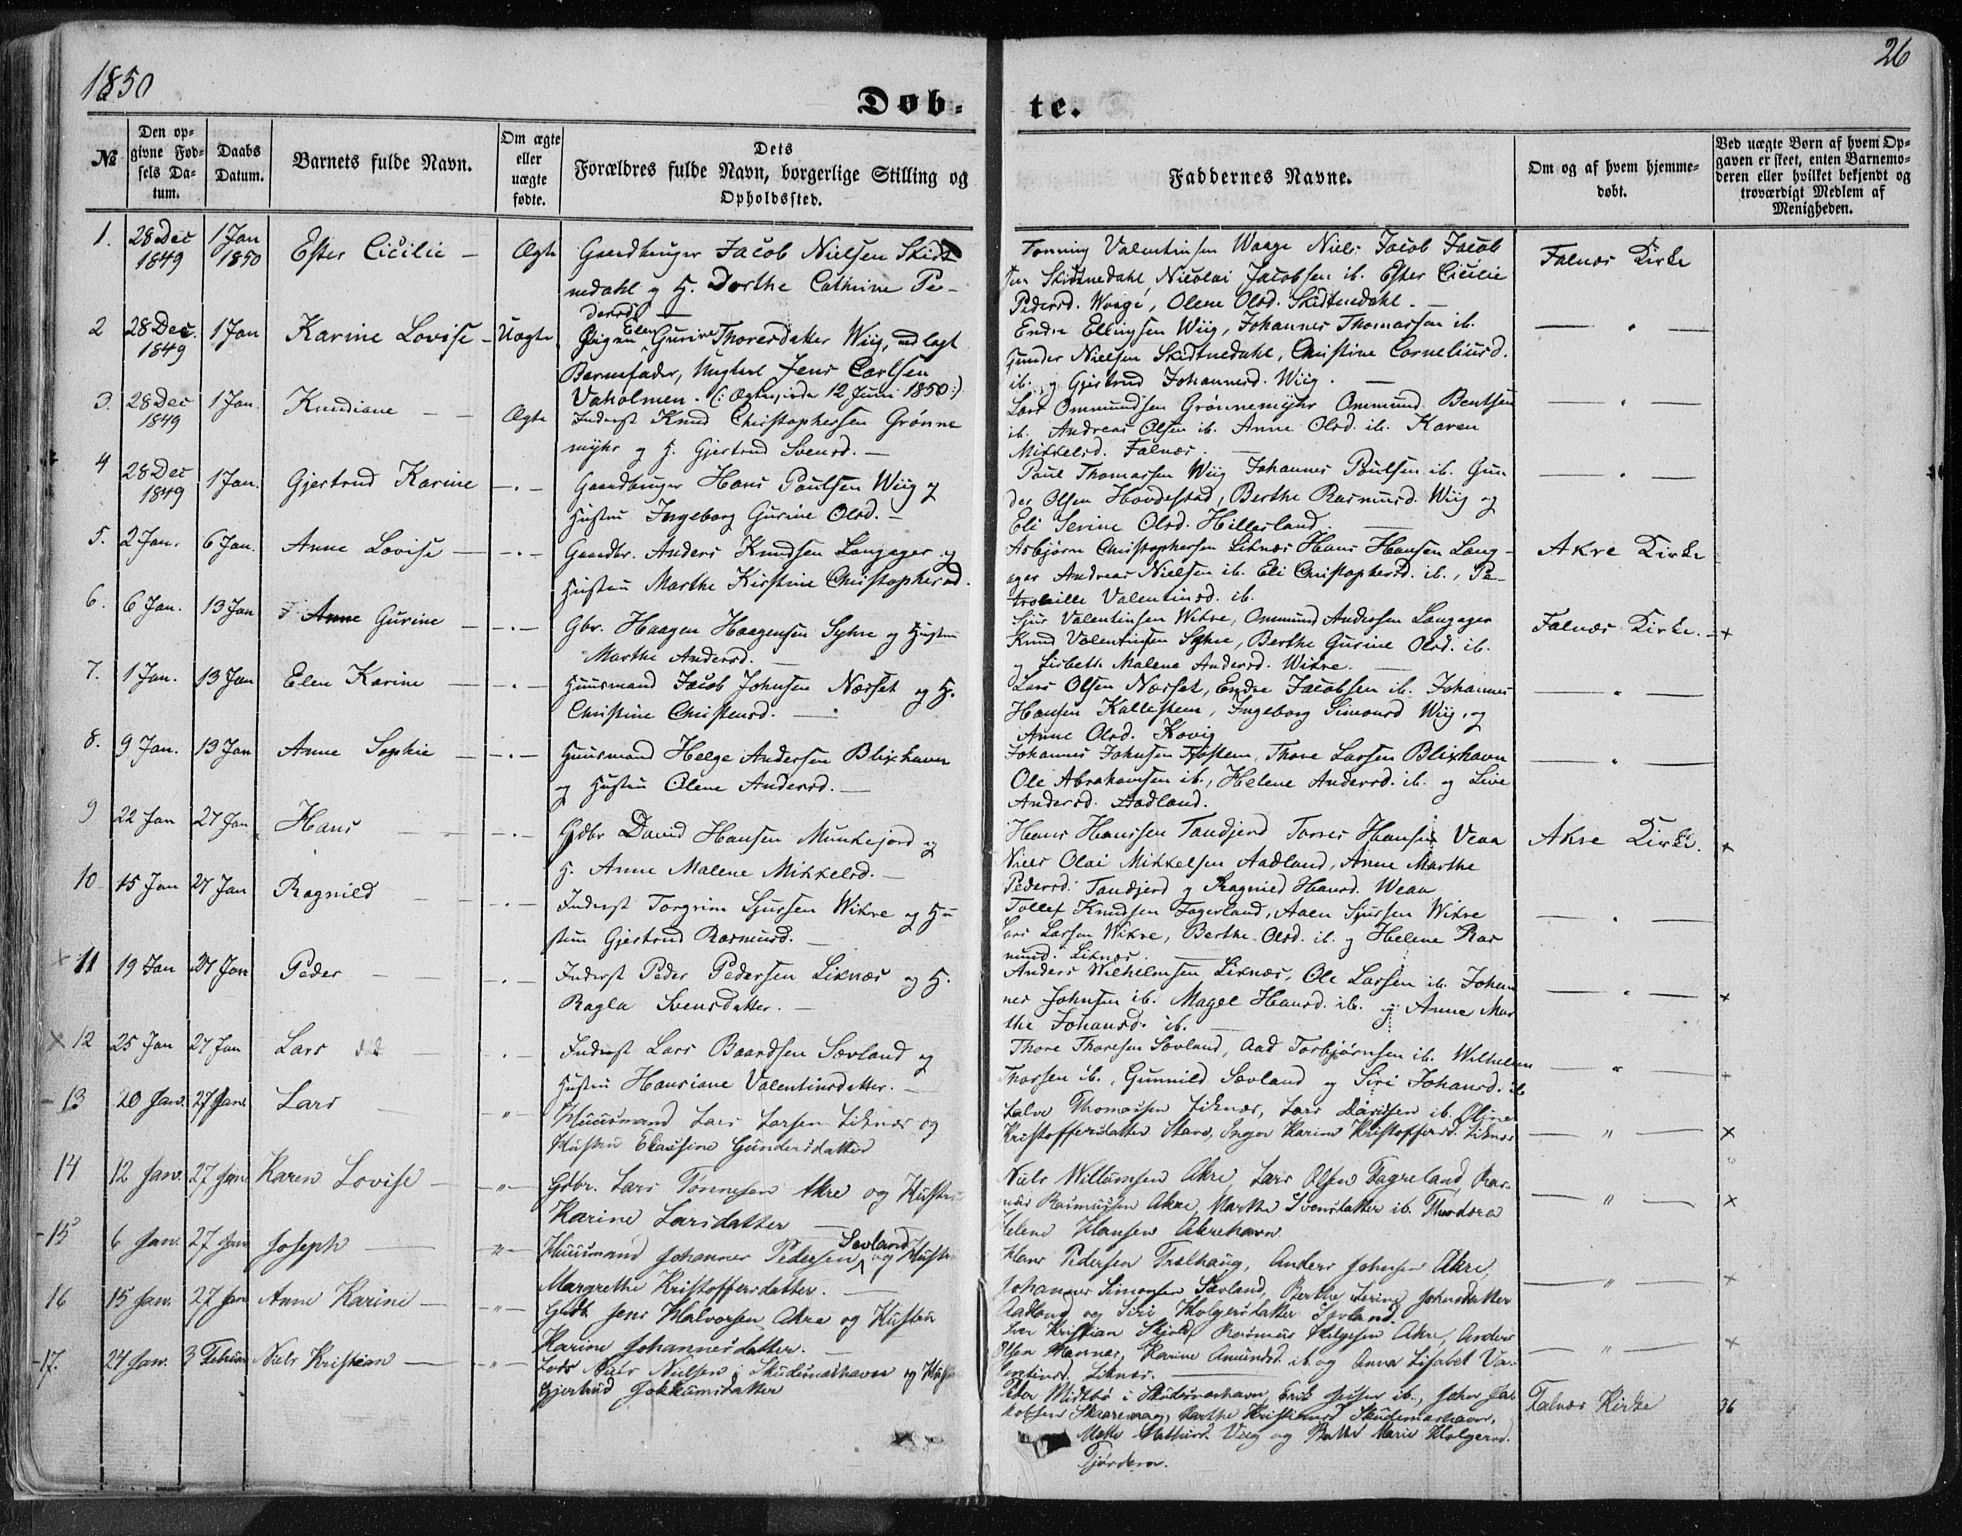 1850
26
Døb-
te.
№
Den op-
givne Fød-
sels Da-
tum.
Daabs
Datum.
Barnets fulde Navn.
Om ægte
eller
uægte
fødte.
Dets
Forældres fulde Navn, borgerlige Stilling og
Opholdssted.
Faddernes Navne.
Om og af hvem hjemme-
døbt.
Ved uægte Børn af hvem Op-
gaven er skeet, enten Barnemo-
deren eller hvilket bekjendt og
troværdigt Medlem af
Menigheden.
1.
28 Dec
1849
1 Jan
1850
Ester Cicilie
Ægte
Gaardbruger Jacob Nielsen Skidt
nedahl og H. Dorthe Cathrine Pe-
dersd.
Tønning Valentinsen Waage Niels Jacob Jacob
sen Skidtnedahl, Nicolai Jacobsen ib. Ester Cicilie
Pedersd. Waage, Olene Olsd. Skidtnedahl.
Falnæs Kirke
2
28 Dec.
1849
1 Jan
Karine Lovise
Uægte
Pigen Elen Gurine Thoresdatter Wiig, udlagt
Barnefader, Ungkarl Jens Carlsen
Vaholmen. (: Ægteviede 12 Juni 1850:)
Endre Ellingsen Wiig, Johannes Thomassen ib.
Gunder Nielsen Skidtnedahl, Christine Corneliusd.
ib. og Gjertrud Johannesd. Wiig.
— " —
3.
28 Dec
1849
1 Jan.
Knudiane
Ægte
Inderst Knud Christophersen Grønne
myhr og H. Gjertrud Svensd.
Lars Ommundsen Grønnemyhr Ommund Bentsen
ib. Andreas Olsen ib. Anne Olsd. ib. Karen
Mikkelsd. Falnæs.
— " —
4
28 Dec
1849
1 Jan.
Gjertrud Karine
— " —
Gaardbruger Hans Poulsen Wiig og
Hustru Ingeborg Gurine Olsd.
Poul Thomassen Wiig Johannes Poulsen ib. Gun
der Olsen Hovdestad, Berthe Rasmusd. Wiig og
Eli Serine Olsd. Hillesland.
— " —
5.
2 Jan.
6 Jan.
Anne Lovise
— " —
Gaardbr. Anders Knudsen Langager og
Hustru Marthe Kirstine Christophersd.
Asbjørn Christophersen Liknæs Hans Hansen Lang-
ager Andreas Nielsen ib. Eli Christophersd. ib., Pe-
tronille Valentinsd. ib.
Akre Kirke
6.
6 Jan.
13 Jan
Anne Gurine
— " —
Gbr. Haagen Haagensen Syhre og Hustru
Marthe Andersd.
Sjur Valentinsen Wikre, Ommund Andersen Langager
Knud Valentinsen Syhre, Berthe Gurine Olsd. ib.
og Lisbeth Malene Andersd. Wikre.
Falnæs Kirke. +
7.
1 Jan.
13 Jan
Elen Karine
— " —
Huusmand Jacob Johnsen Nørset og H.
Christine Christensd.
Lars Olsen Norset, Endre Jacobsen ib. Johannes
Hansen Kallestem, Ingeborg Simonsd Wiig, og
Anne Olsd. Kovig
— " —
8.
9 Jan.
13 Jan
Anne Sophie
— " —
Huusmand Helge Andersen Blixhavn
og Hustru Olene Andersd.
Johannes Johnsen Tostem, Thore Larsen Blixhavn
Ole Abrahamsen ib., Helene Andersd. ib. og Live
Andersd. Aadland.
— " —
9
22 Jan
27 Jan
Hans
— " —
Gdbr David Hansen Munkejord og
H. Anne Malene Mikkelsd.
Hans Hanssen Tandjerd Torres Hansen Veaa
Niels Olai Mikkelsen Aadland, Anne Marthe
Pedersd. Tandjerd og Ragnied Hansd. Weaa
Akre Kirke. ×
10
15 Jan
27 Jan
Ragnild
— " —
Inderst Torgrim Sjursen Wikre og Hu
stru Gjertrud Rasmusd.
Tollef Knudsen Fagerland, Aaen Sjursen Wikre
Lars Larsen Wikre, Berthe Olsd. ib. og Helene Ras
musd. Liknæs.
— " —
× 11
19 Jan
27 Jan
Peder
— " —
Inderst Peder Pedersen Liknæs og H.
Ragla Svensdatter.
Anders Wilhelmsen Liknæs, Ole Larsen ib. Johan
nes Johnsen ib. Magel Hansd. ib. og Anne Mar
the Johansd. ib.
— " — ×
× 12
25 Jan
27 Jan
Lars
Inderst Lars Baardsen Sævland og
Hustru Hansiane Valentinsdatter.
Thore Thoresen Sævland, Aad Torbjørnsen ib. Wilhelm
Thorsen ib., Gunnild Sævland og Siri Johansd. ib
— " — ×
- 13
20 Jan.
27 Jan.
Lars
"
Huusmand Lars Larsen Liknæs og
Hustru Elassine Gundersdatter
Salve Thomassen Liknæs, Lars Davidsen ib. Oline
Kristoffersdatter Stave, Inger Karine Kristoffersd. Liknæs
— " — ×
14
12 Jan.
27 Jan.
Karen Lovise
— " —
Gdbr. Lars Tønnesen Akre og Hustru
Karine Larsdatter
Niels Willumsen Akre, Lars Olsen Fagreland, Ras-
mus Rasmussen Akre, Marthe Svensdatter ib. Theodora
Helene Hansen Akrehavn
— " — ×
- 15
6 Jan.
27 Jan
Joseph
" —
Huusmand Johannes Pedersen Sevland og Hustru
Margrethe Kristoffersdatter.
Hans Pedersen Trælhaug, Anders Johnsen Akre,
Johannes Simonsen Sævland, Berthe Serine Johnsdatter
Aadland og Siri Holgersdatter Sævland.
— " — ×
16
15 Jan.
27 Jan
Anne Karine
— " —
Gdb. Jens Halvorsen Akre og Hustru
Karine Johannesdatter.
Iver Kristian Skjold, Rasmus Helgesen Akre, Anders
Olsen Mannes, Karine Amundsd. ib. og Anna Lisabet Va-
lentinsd. Liknæs.
— " — ×
- 17.
24 Jan.
3 Februar
Niels Kristian
— " —
Lods Niels Nielsen i Skudenæshavn og Hustru
Gjertrud Jokkumsdatter
Peter Midtbø i Skudesnæshavn, Erik Jensen ib., Johan Ja-
kobsen Skaarevaag, Marthe Kristiansd Skudesnæshavn,
Mette Mathiasd. Viig og Berthe Marie Holgersd.
Tjøsdem.
Falnæs Kirke
36